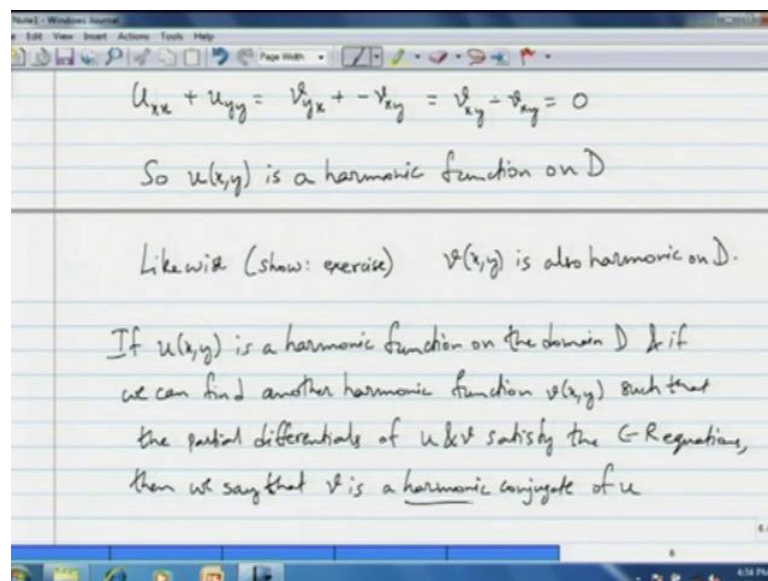 Note1 - Windows Journal
Edit View Insert Actions Tools Help
Page Width
u_xx + u_yy = v_yx + -v_xy = v_xy - v_xy = 0
So u(x,y) is a harmonic function on D
Likewise (show: exercise) v(x,y) is also harmonic on D.
If u(x,y) is a harmonic function on the domain D & if
we can find another harmonic function v(x,y) such that
the partial differentials of u & v satisfy the C-R equations,
then we say that v is a harmonic conjugate of u
6
4:54 PM